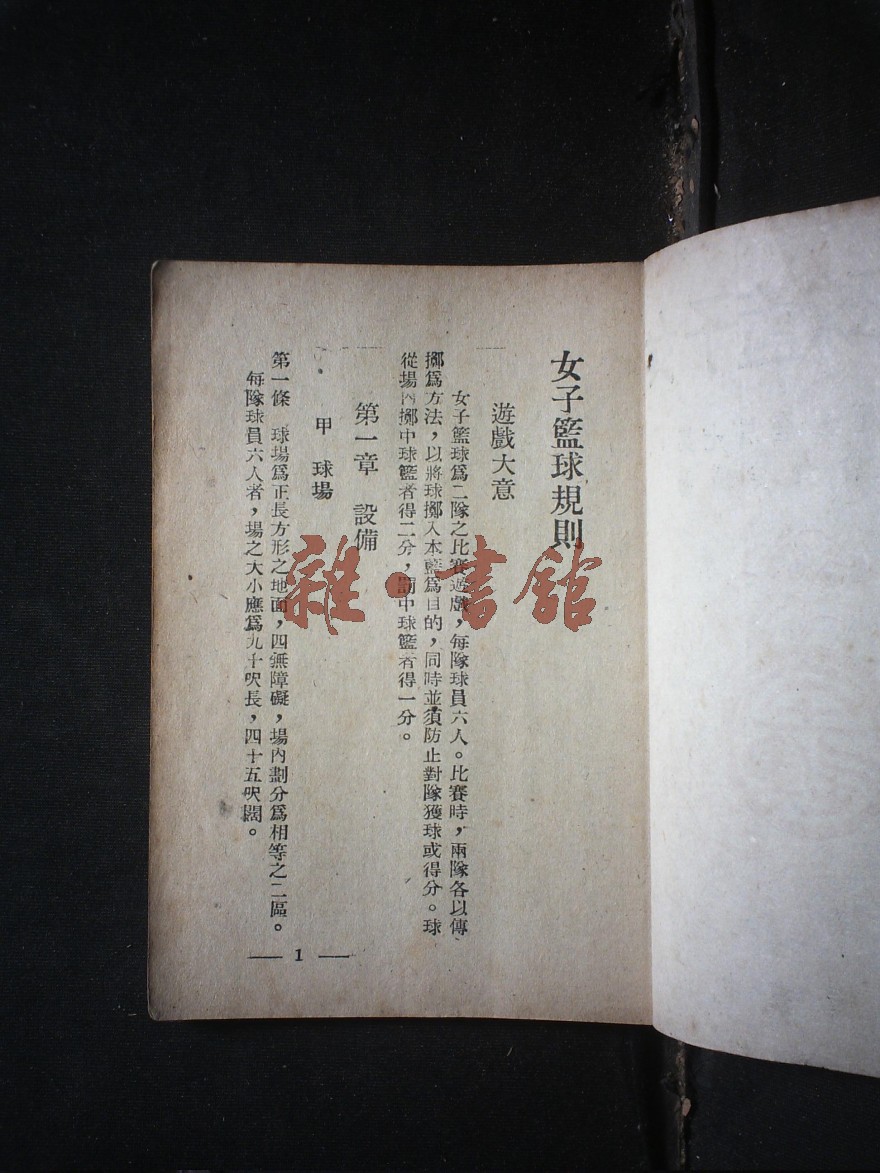 女子籃球規則
遊戲大意
女子籃球爲二隊之比賽遊戲，每隊球員六人。比賽時，兩隊各以傳、
擲爲方法，以將球擲入本籃爲目的，同時並須防止對隊獲球或得分。球
從場內擲中球籃者得二分，罰中球籃者得一分。
第一章 設備
甲 球場
第一條 球場爲正長方形之地面，四無障礙，場內劃分爲相等之二區。
每隊球員六人者，場之大小應爲九十呎長，四十五呎闊。
— 1 —
雜·書館